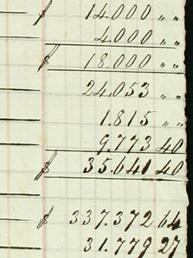 $ 14.000 " "
4.000 " "
$ 18.000 " "
24.053 " "
1.815 " "
9.773 40
$ 35.641 40
$ 337.372 64
31.779 27